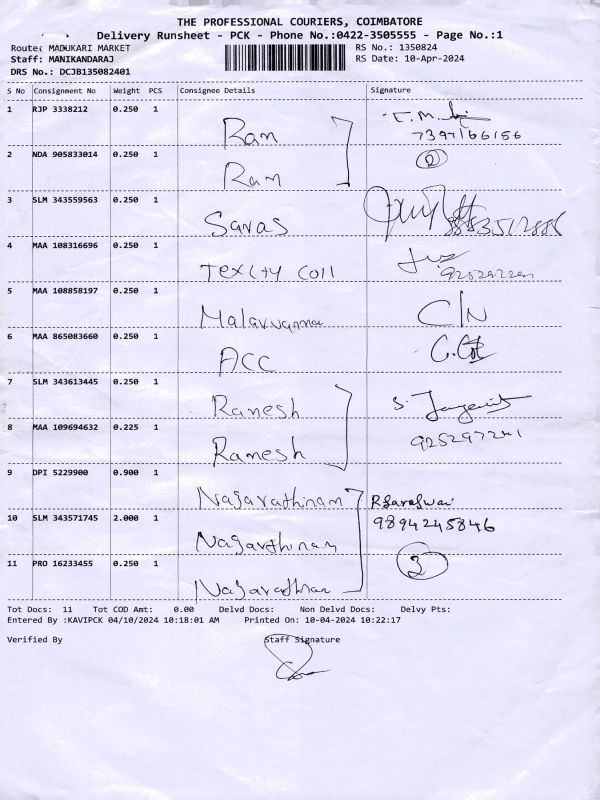 THE PROFESSIONAL COURIERS, COIMBATORE
Delivery Runsheet - PCK - Phone No.:0422-3505555 - Page No.:1
Route: MADUKARI MARKET RS No.: 1350824
Staff: MANIKANDARAJ RS Date: 10-Apr-2024
DRS No.: DCJB135082401
S No Consignment No Weight PCS Consignee Details Signature
1 RJP 3338212 0.250 1 Ram
7397166156
2 NDA 905833014 0.250 1 Ram 2
3 SLM 343559563 0.250 1 Saras
4 MAA 108316696 0.250 1 Texcity Coll
5 MAA 108858197 0.250 1 C/N
6 MAA 865083660 0.250 1 ACC
7 SLM 343613445 0.250 1 Ramesh S.
8 MAA 109694632 0.225 1 Ramesh
9 DPI 5229900 0.900 1 Nagarathinam
9894245846
10 SLM 343571745 2.000 1 Nagarathinam
11 PRO 16233455 0.250 1 3
Tot Docs: 11 Tot COD Amt: 0.00 Delvd Docs: Non Delvd Docs: Delvy Pts:
Entered By :KAVIPCK 04/10/2024 10:18:01 AM Printed On: 10-04-2024 10:22:17
Verified By Staff Signature